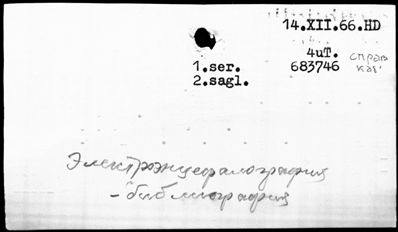 14.XII.66.HD
4uT. справ
1.ser. 683746 кат
2.sagl.
Электроэнцефалография
- библиография